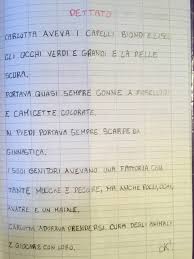 DETTATO
CARLOTTA AVEVA I CAPELLI BIONDI E LISCI,
GLI OCCHI VERDI E GRANDI E LA PELLE
SCURA.
PORTAVA QUASI SEMPRE GONNE A FIORELLINI
E CAMICETTE COLORATE.
AI PIEDI PORTAVA SEMPRE SCARPE DA
GINNASTICA.
I SUOI GENITORI AVEVANO UNA FATTORIA CON
TANTE MUCCHE E PECORE, MA ANCHE POLLI, OCHE,
ANATRE E UN MAIALE.
CARLOTTA ADORAVA PRENDERSI CURA DEGLI ANIMALI
E GIOCARE CON LORO.